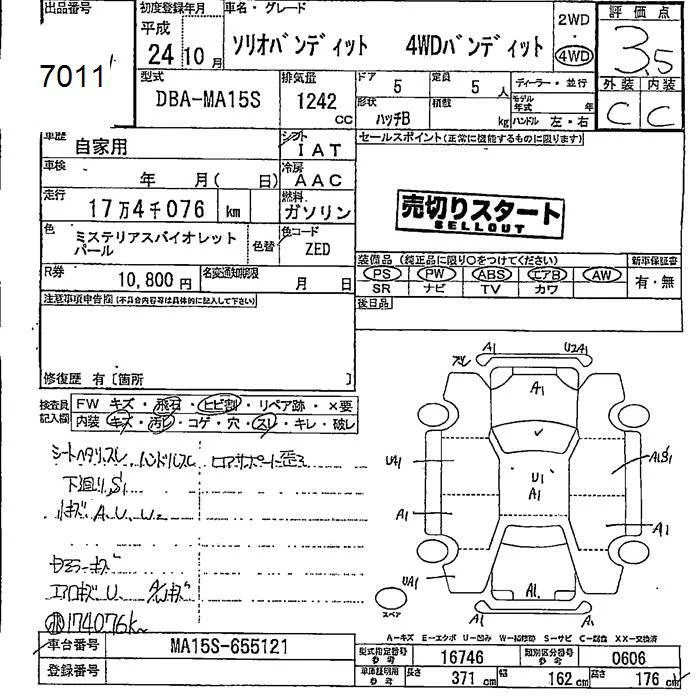 出品番号 7011
初度登録年月 平成 24 10月
車名・グレード ソリオバンディット 4WDバンディット
2WD 4WD
評価点 3.5
外装 内装
C C
型式 DBA-MA15S
排気量 1242 CC
ドア 5 定員 5 人
形状 ハッチB 積載 kg
ディーラー・並行
モデル年式 年
ハンドル 左・右
車歴 自家用
シフト IAT
セールスポイント(正常に機能するものに限ります)
車検 年 月( 日)
冷房 AAC
走行 17万4千076 km
燃料 ガソリン
売切りスタート
SELLOUT
色 ミステリアスバイオレットパール
色替
色コード ZED
装備品 (純正品に限り○をつけてください) 新車保証書
PS PW ABS エアB AW 有・無
SR ナビ TV カワ
R券 10,800円
名変通知期限 月 日
後日品
注意事項申告欄(不具合内容等は具体的に記入して下さい)
修復歴 有〔箇所 〕
検査員記入欄
FW キズ・飛石・ヒビ割・リペア跡・×要
内装・キズ・汚レ・コゲ・穴・スレ・キレ・破レ
シートヘタリ,スレ ハンドルスレ
下廻り,S1
小キズ A.U.W.
174076K
A1 U2A1
A1
U1
A1
UA1
A1
A1
A1
A1
スペア
A-キズ E-エクボ U-凹み W-補修跡 S-サビ C-腐食 XX-交換済
車台番号 MA15S-655121
登録番号
型式指定番号 参考 16746 類別区分番号 参考 0606
車庫証明用 参考 長さ 371 cm 幅 162 cm 高さ 176 cm